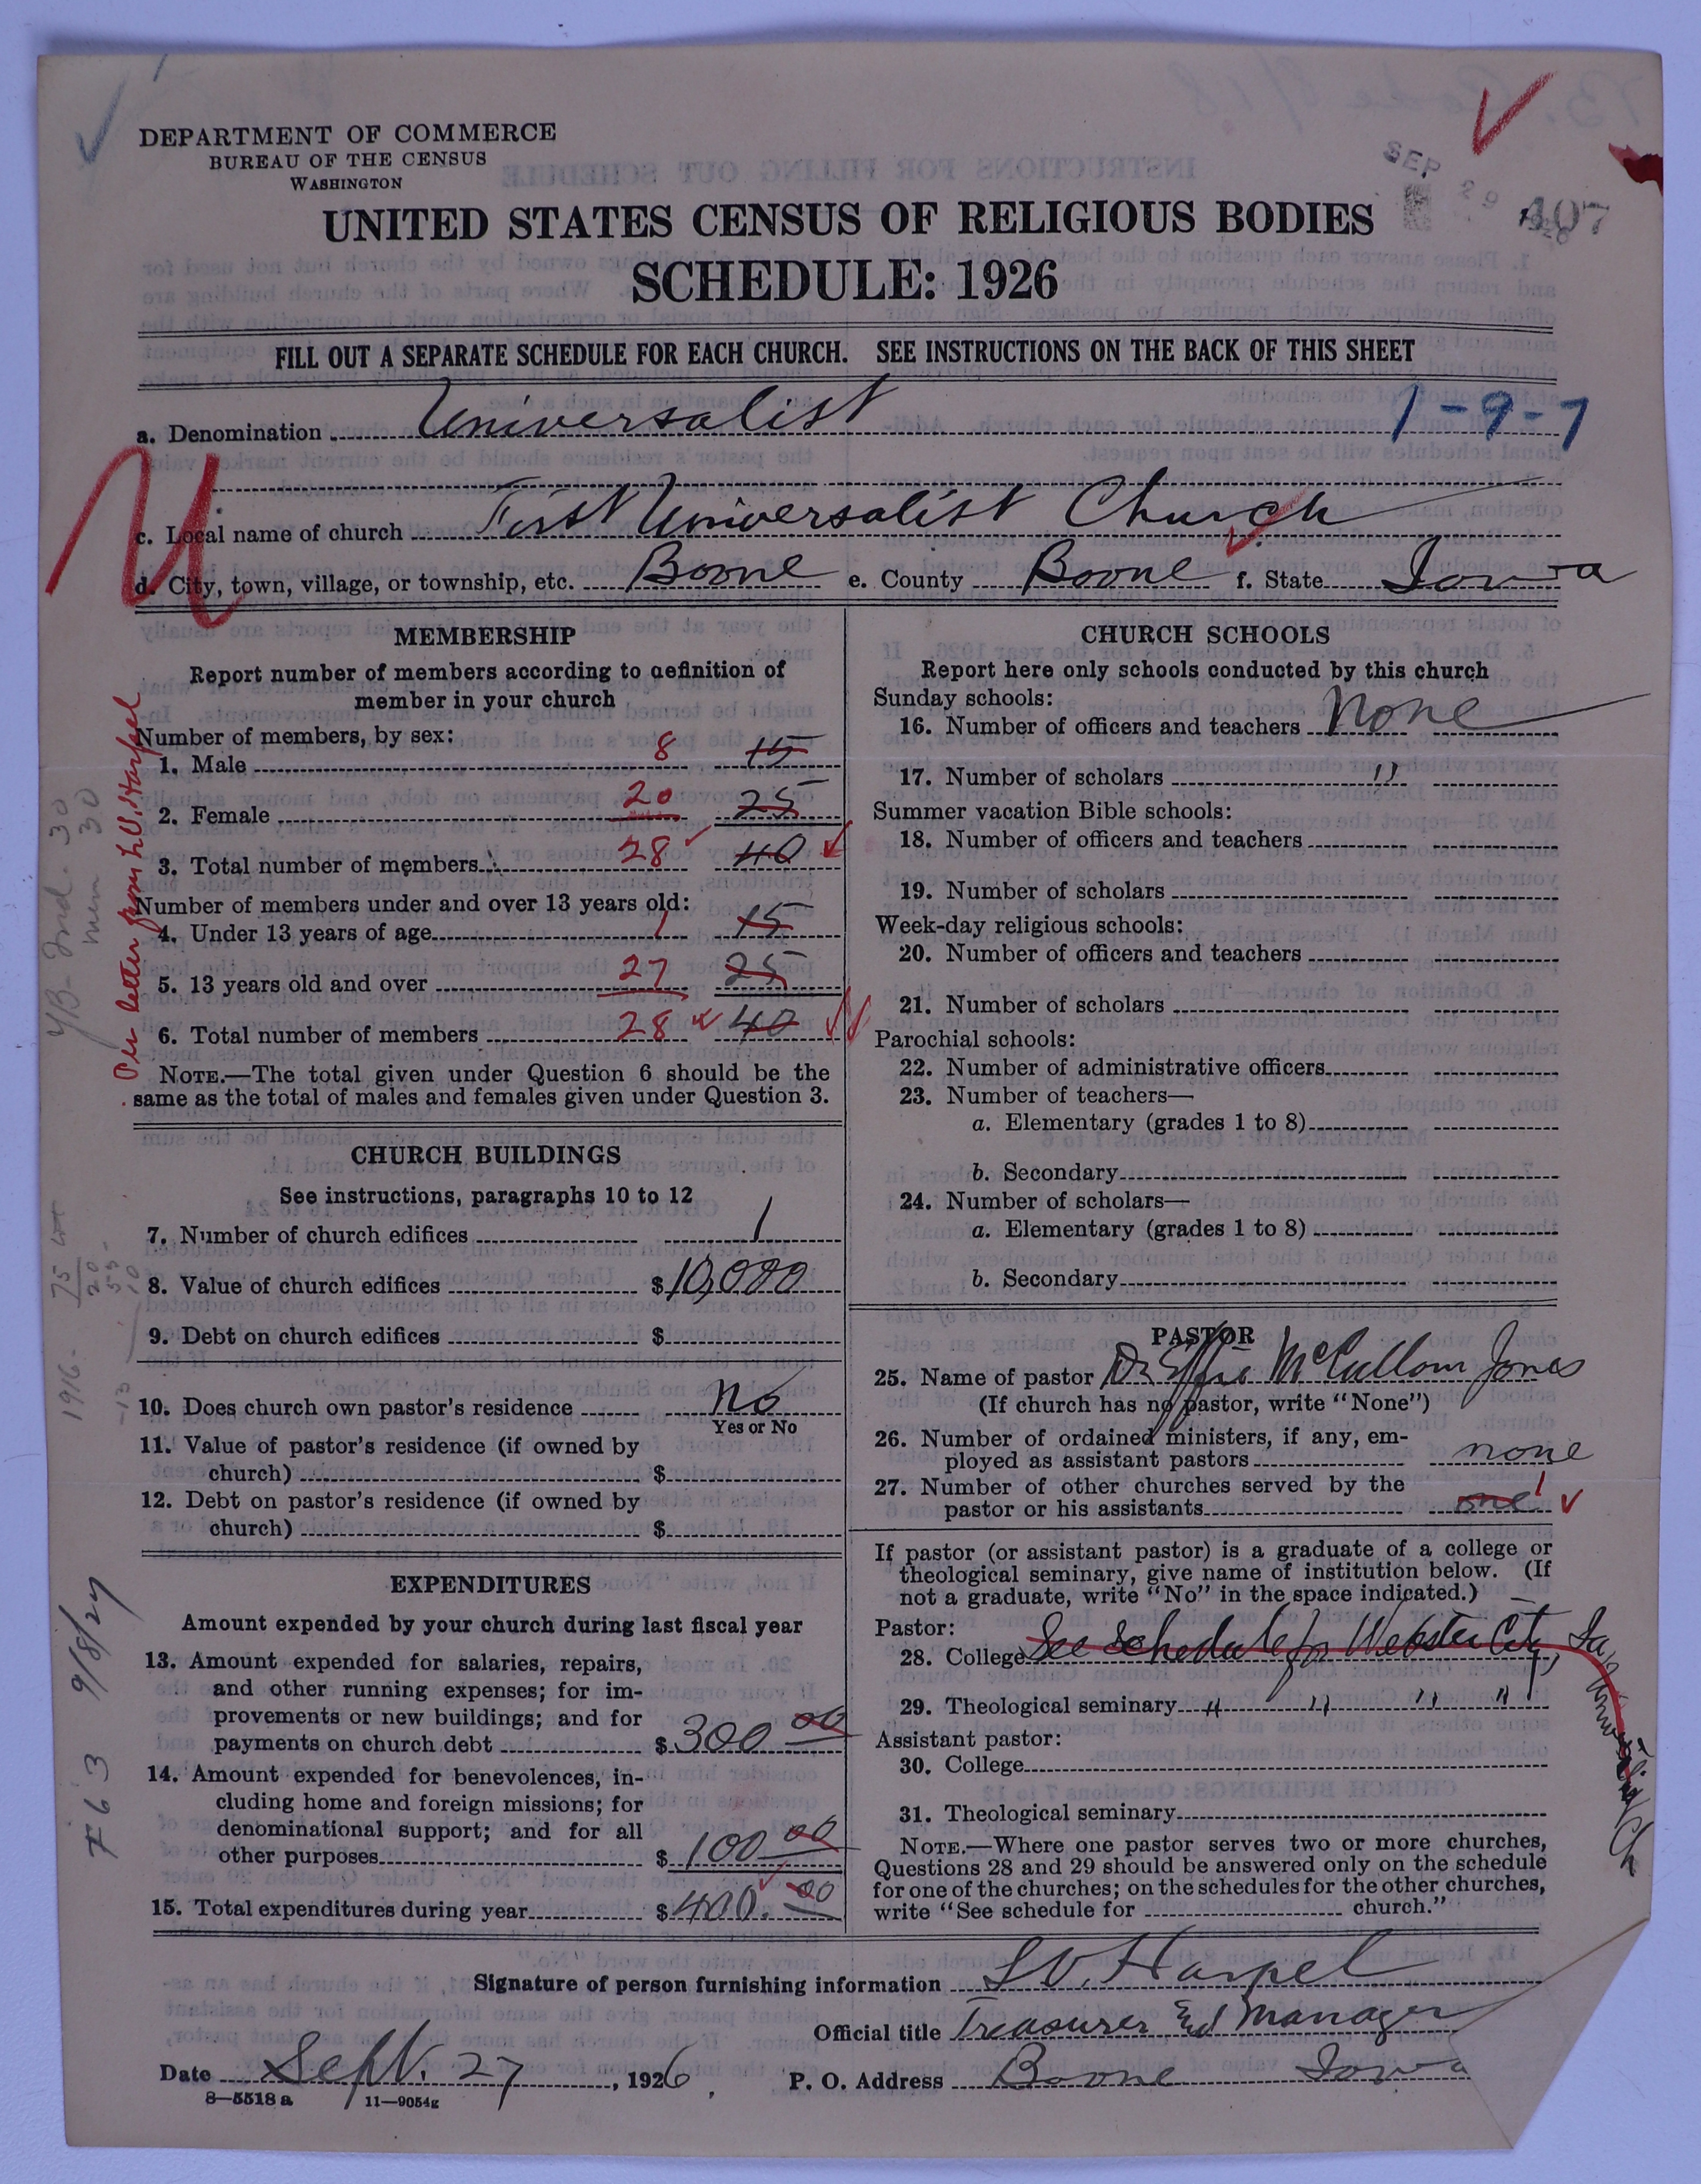 DEPARTMENT OF COMMERCE
BUREAU OF THE CENSUS
WASHINGTON
SEP 29 1926
107
UNITED STATES CENSUS OF RELIGIOUS BODIES
SCHEDULE: 1926
FILL OUT A SEPARATE SCHEDULE FOR EACH CHURCH. SEE INSTRUCTIONS ON THE BACK OF THIS SHEET
a. Denomination Universalist 1-9-7
U
c. Local name of church First Universalist Church
d. City, town, village, or township, etc. Boone e. County Boone f. State Iowa
MEMBERSHIP
Report number of members according to definition of
member in your church
Number of members, by sex:
1. Male 8 15
2. Female 20 25
3. Total number of members 28 40
Number of members under and over 13 years old:
4. Under 13 years of age 1 15
5. 13 years old and over 27 25
6. Total number of members 28 40
NOTE.—The total given under Question 6 should be the
same as the total of males and females given under Question 3.
Per letter from L.V. Harpel
CHURCH BUILDINGS
See instructions, paragraphs 10 to 12
7. Number of church edifices 1
8. Value of church edifices $10,000
9. Debt on church edifices $
10. Does church own pastor's residence No
Yes or No
11. Value of pastor's residence (if owned by
church) $
12. Debt on pastor's residence (if owned by
church) $
1916-
EXPENDITURES
Amount expended by your church during last fiscal year
13. Amount expended for salaries, repairs,
and other running expenses; for im-
provements or new buildings; and for
payments on church debt $ 300 00
14. Amount expended for benevolences, in-
cluding home and foreign missions; for
denominational support; and for all
other purposes $ 100 00
15. Total expenditures during year $ 400. 00
F63 9/8/27
CHURCH SCHOOLS
Report here only schools conducted by this church
Sunday schools:
16. Number of officers and teachers None
17. Number of scholars "
Summer vacation Bible schools:
18. Number of officers and teachers
19. Number of scholars
Week-day religious schools:
20. Number of officers and teachers
21. Number of scholars
Parochial schools:
22. Number of administrative officers
23. Number of teachers—
a. Elementary (grades 1 to 8)
b. Secondary
24. Number of scholars—
a. Elementary (grades 1 to 8)
b. Secondary
PASTOR
25. Name of pastor Dr Effie McCullom Jones
(If church has no pastor, write "None")
26. Number of ordained ministers, if any, em-
ployed as assistant pastors none
27. Number of other churches served by the
pastor or his assistants one 1
If pastor (or assistant pastor) is a graduate of a college or
theological seminary, give name of institution below. (If
not a graduate, write "No" in the space indicated.)
Pastor:
28. College See schedule for Webster City, Ia, Universalist Ch
29. Theological seminary " " " "
Assistant pastor:
30. College
31. Theological seminary
NOTE.—Where one pastor serves two or more churches,
Questions 28 and 29 should be answered only on the schedule
for one of the churches; on the schedules for the other churches,
write "See schedule for church."
Signature of person furnishing information L V. Harpel
Official title Treasurer and Manager
Date Sept. 27, 1926 P. O. Address Boone Iowa
8—5518 a 11—9054g